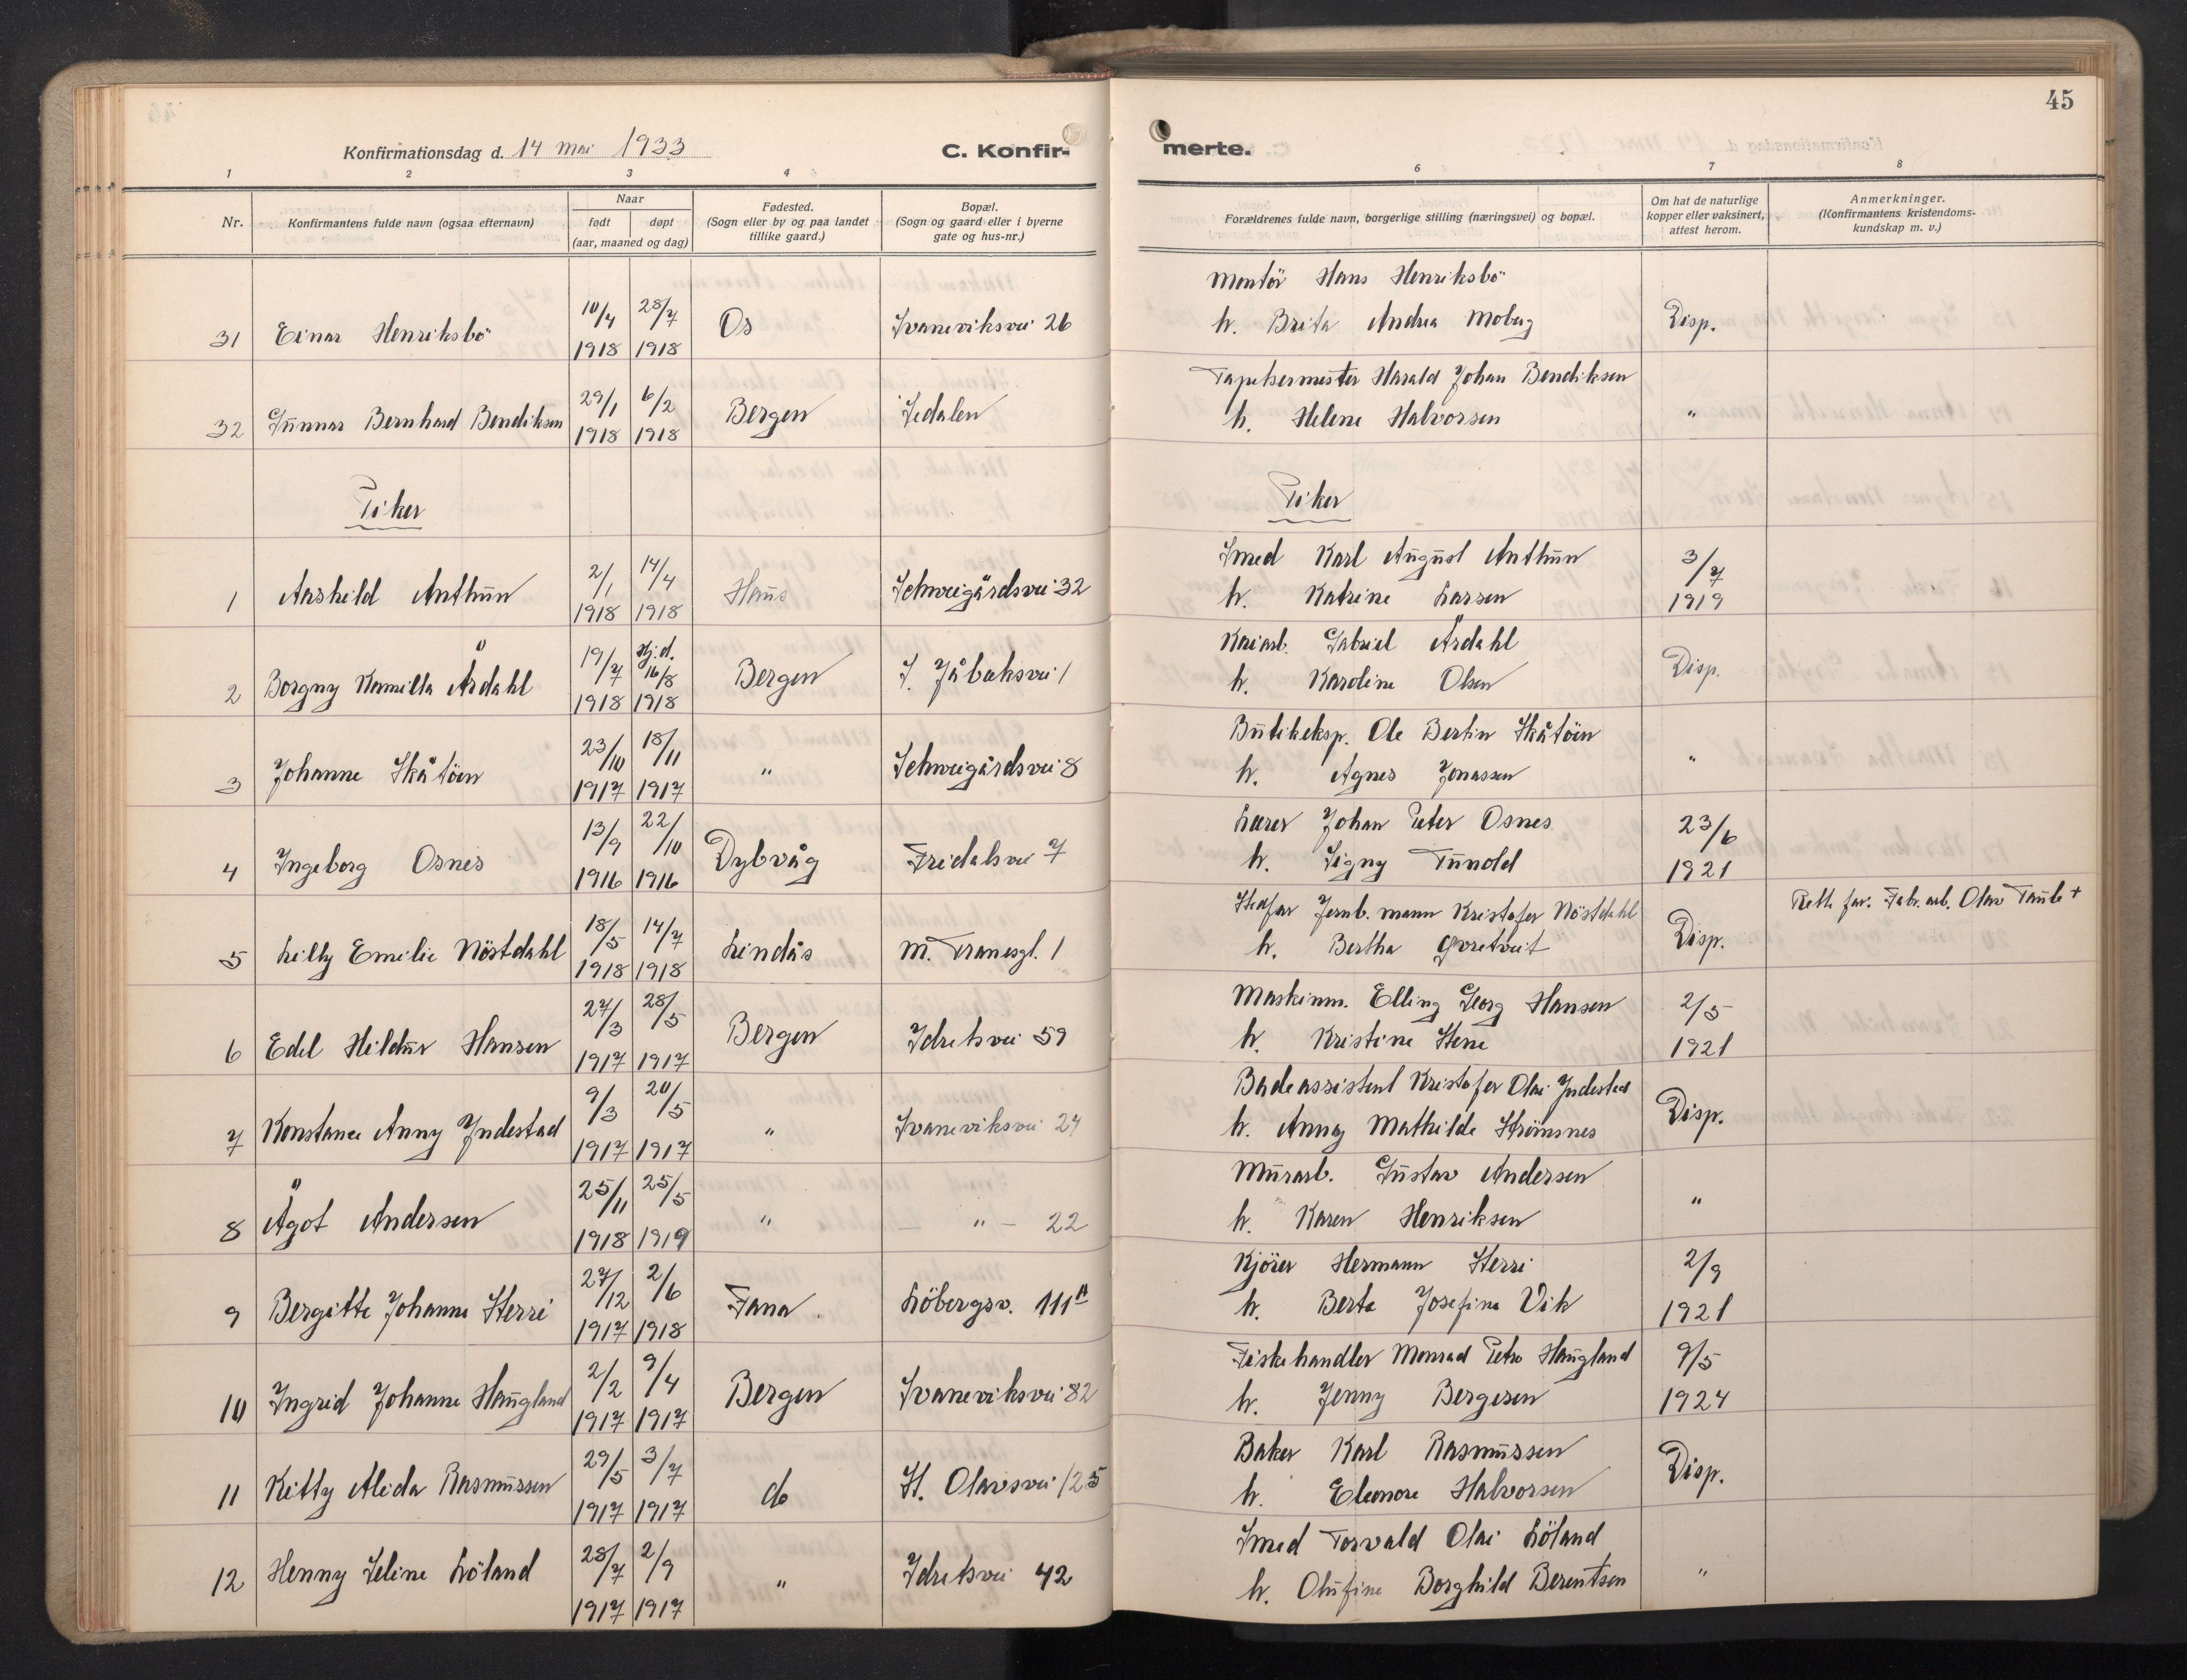 45
Konfirmationsdag d. 14 mai 1933
C. Konfir-
merte.
1 2 3 4 6 7 8
Nr.
Konfirmantens fulde navn (ogsaa efternavn)
Naar
født døpt
(aar, maaned og dag)
Fødested.
(Sogn eller by og paa landet
tillike gaard.)
Bopæl.
(Sogn og gaard eller i byerne
gate og hus-nr.)
Forældrenes fulde navn, borgerlige stilling (næringsvei) og bopæl.
Om hat de naturlige
kopper eller vaksinert,
attest herom.
Anmerkninger.
(Konfirmantens kristendoms-
kundskap m. v.)
Montör Hans Henriksbö
31 Einar Henriksbö 10/4 28/7 Os Svaneviksvei 26 h. Brita Andrea Moberg Disp.
1918 1918
Tapetsermester Harald Johan Bendiksen
32 Gunnar Bernhard Bendiksen 29/1 6/2 Bergen Sedalen h. Helene Halvorsen "
1918 1918
Piker Piker
Smed Karl August Anthun 3/7
1 Aashild Anthun 2/1 14/4 Haus Schweigårdsvei 32 h. Katrine Larsen 1919
1918 1918
Kaiarb. Gabriel Årdahl
2 Borgny Kamilla Årdahl 19/7 Hj.d. 16/8 Bergen J. Jåbæksvei 1 h. Karoline Olsen Disp.
1918 1918
Butikeksp. Ole Bertin Skåtöen
3 Johanne Skåtöen 23/10 18/11 " Schweigårdsvei 8 h. Agnes Jonassen "
1917 1917
Lærer Johan Peter Osnes 23/6
4 Ingeborg Osnes 13/9 22/10 Dybvåg Fridalsvei 7 h. Signy Tunold 1921
1916 1916
Stedfar Jernb. mann Kristofer Nöstdahl Rette far: Fabr. arb. Olav Taule +
5 Lilly Emilie Nöstdahl 18/5 14/7 Lindås M. Tranesgt. 1 h. Bertha Qvretveit Disp.
1918 1918
Maskinm. Elling Georg Hansen 2/5
6 Edel Hildur Hansen 27/3 28/5 Bergen Idretsvei 59 h. Kristine Stene 1921
1917 1917
Badeassistent Kristofer Olai Indestad
7 Konstance Anny Indestad 9/3 20/5 " Svaneviksvei 24 h. Anna Mathilde Strömsnes Disp.
1917 1917
Murarb. Gustav Andersen
8 Ågot Andersen 25/11 25/5 " — " — 22 h. Karen Henriksen "
1918 1919
Kjörer Hermann Sterri 2/9
9 Bergitte Johanne Sterri 27/12 2/6 Fana Löbergsv. 111 A h. Berta Josefine Vik 1921
1917 1918
Fiskehandler Monrad Petr. Haugland 9/5
10 Ingrid Johanne Haugland 2/2 9/4 Bergen Svaneviksvei 82 h. Jenny Bergesen 1924
1917 1917
Baker Karl Rasmussen
11 Kitty Alida Rasmussen 29/5 3/7 do St. Olavsvei 125 h. Eleonore Halvorsen Disp.
1917 1917
Smed Torvald Olai Löland
12 Henny Seline Löland 28/7 2/9 " Idretsvei 42 h. Olufine Borghild Berentsen "
1917 1917